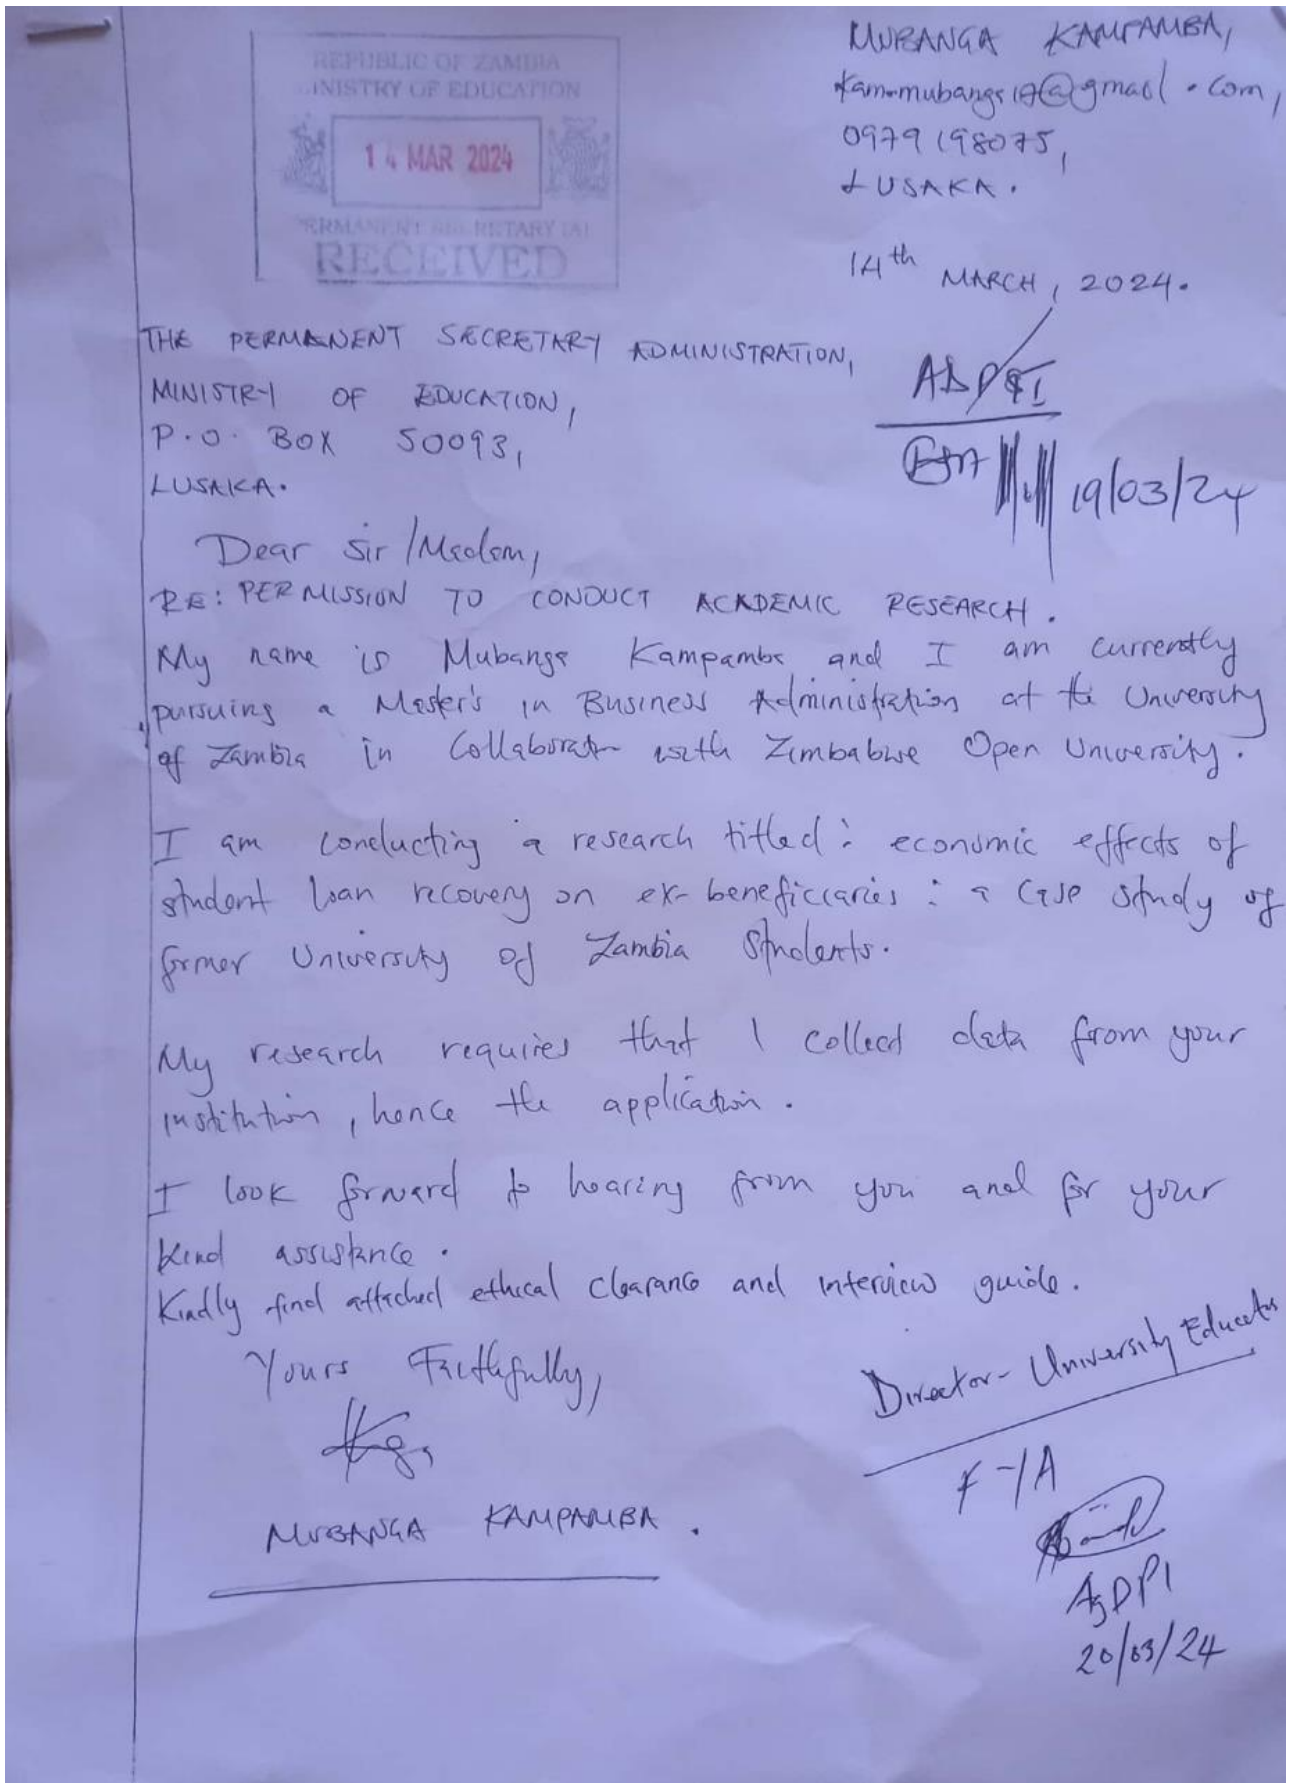 REPUBLIC OF ZAMBIA
MINISTRY OF EDUCATION
14 MAR 2024
PERMANENT SECRETARY (A)
RECEIVED
MUBANGA KAMPAMBA,
@gmail.com,
0979198075,
LUSAKA.
14th MARCH, 2024.
THE PERMANENT SECRETARY ADMINISTRATION,
MINISTRY OF EDUCATION,
P.O. BOX 50093,
LUSAKA.
19/03/24
Dear Sir/Madam,
RE: PERMISSION TO CONDUCT ACADEMIC RESEARCH.
My name is Mubanga Kampamba and I am currently
pursuing a Master's in Business Administration at the University
of Zambia in Collaboration with Zimbabwe Open University.
I am conducting a research titled: economic effects of
student loan recovery on ex-beneficiaries: a case study of
former University of Zambia Students.
My research requires that I collect data from your
institution, hence the application.
I look forward to hearing from you and for your
kind assistance.
Kindly find attached ethical clearance and interview guide.
Yours Faithfully,
MUBANGA KAMPAMBA.
Director-University Education
F-/A
AgDPI
20/03/24